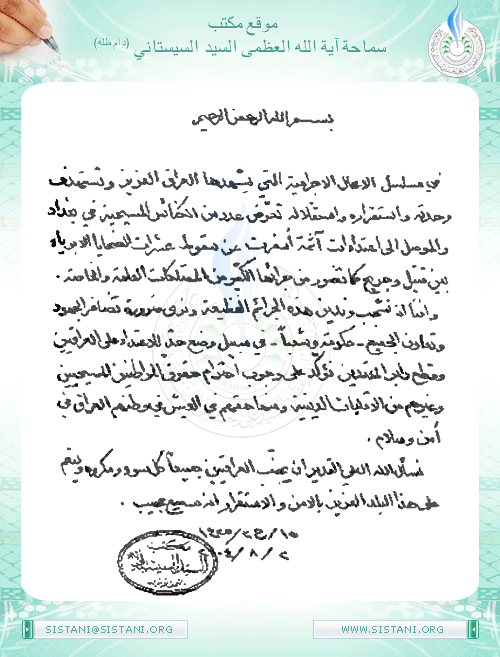 موقع مكتب
سماحة آية الله العظمى السيد السيستاني (دام ظله)
بسم الله الرحمن الرحيم
في مسلسل الاعمال الاجرامية التي يشهدها العراق العزيز وتستهدف
وحدته واستقراره واستقلاله تعرّض عدد من الكنائس المسيحية في بغداد
والموصل الى اعتداءات آثمة أسفرت عن سقوط عشرات الضحايا الابرياء
بين قتيل وجريح كما تضرر من جرائها الكثير من الممتلكات العامة والخاصة .
واننا اذ نشجب وندين هذه الجرائم الفظيعة ونرى ضرورة تضافر الجهود
وتعاون الجميع - حكومة وشعباً - في سبيل وضع حد للاعتداء على العراقيين
وقطع دابر المعتدين نؤكد على وجوب احترام حقوق المواطنين المسيحيين
وغيرهم من الاقليات الدينية ومنها حقهم في العيش في وطنهم العراق في
أمن وسلام .
نسأل الله العلي القدير ان يجنب العراقيين جميعاً كل سوء ومكروه وينعم
على هذا البلد العزيز بالامن والاستقرار انه سميع مجيب .
١٥/ج٢/١٤٢٥
٢/٨/٢٠٠٤
مكتب
السيد السيستاني
SISTANI@SISTANI.ORG
WWW.SISTANI.ORG